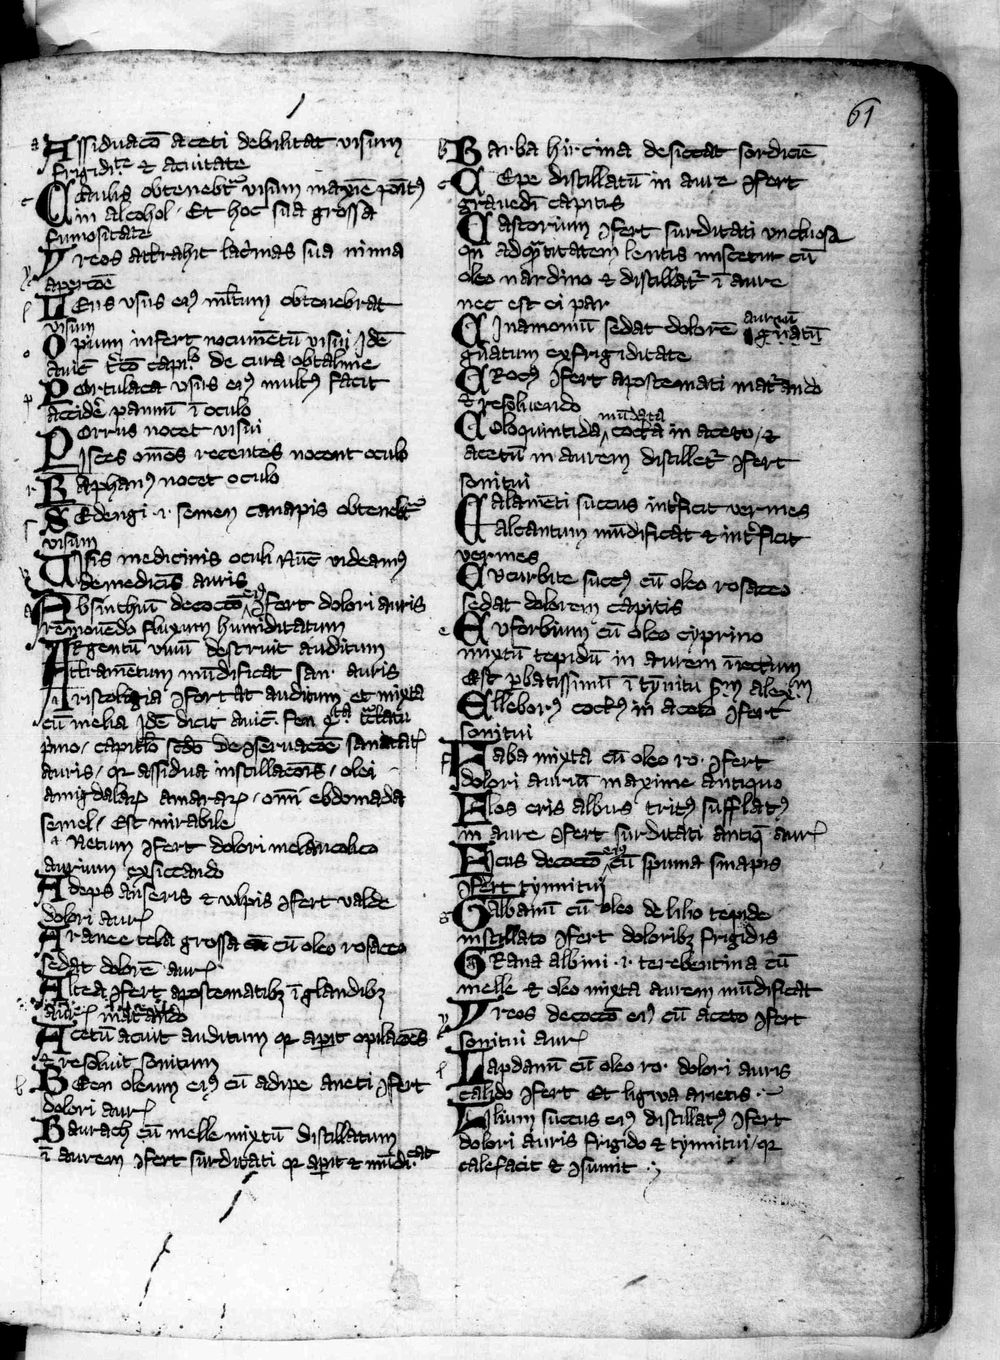 61
a Assiduaco͞ aceti debilitat visum
frigidite͞ & acuitate
c Caulis obtenebr͞ visum maxie͞
in alcohol. Et hoc sua grossa
fumositate
y yreos attrahit lac͞mas sua nimia
apercoe͞
l Lens usus eiꝰ ml͞tum obtenebrat
visum
o Opium infert nocume͞tu͞ visui Ide͞
auic͞ de cura obtalmie
p Portulaca usus eiꝰ multꝰ facit
accide͞ pannu͞ i͞ oculo
Porrus nocet visui
Pisces om͞es recentes nocent oculo
r Raphanꝰ nocet oculo
s Sedengi .i. semen canapis obteneb͞r
visum
Visis medicinis oculi Nu͞c videamꝰ
de medicis auris
a Absinthiu͞ decocco͞ eiꝰ ꝯfert dolori auris
remoue͞do fluxum humiditatum
Argentu͞ vivu͞ destruit auditum
Attrame͞tum mu͞dificat san. auris
Aristologia ꝯfortat auditum et mixta
cu͞ melle Ide͞ dicit auic͞. Fen
p͞mo / capitl͞o sc͞do de ꝯseruaco͞e sanitatꝭ
auris / qꝛ assidua instillaco͞is / olei
amigdalaꝝ amaraꝝ / omni͞ ebdomada
semel / Est mirabile
Anetum ꝯfert dolori melancolico
aurium exsiccando
Adeps anseris & vulpis ꝯfert valde
dolori aurꝭ
Aranee tela grossa cu͞ oleo rosaceo
sedat dolore͞ aurꝭ
Altea ꝯfert apostematibꝫ i͞ glandibꝫ
aurꝭ maturando
Acetu͞ acuit auditum qꝛ aperit opilaco͞es
& resoluit sonitum
b Been oleum eiꝰ cu͞ adipe aneti ꝯfert
dolori aurꝭ
Baurach cu͞ melle mixtu͞ distillatum
i͞ aurem ꝯfert surditati qꝛ aꝑit & mu͞dificat
b Barba hircina desiccat sordicie͞
c Cepe distillatu͞ in aure ꝯfert
grauedi͞ capitis
Castorium ꝯfert surditati unctuosa
qn͞ ad qua͞titatem lentis miscetur cu͞
oleo nardino & distillatꝛ i͞ aure
nec est ei par
Cinamomu͞ sedat dolore͞ auriu͞ ignatu͞
gn͞atum ex frigiditate
Crocꝰ ꝯfert apostemati mat͞ando
& resoluendo
Coloquintida mu͞data cocta in aceto / &
acetu͞ in aurem distilletꝛ ꝯfert
sonitui
Calame͞ti succus int͞ficit vermes
Calcantum mu͞dificat & int͞ficit
vermes
Cucurbite succꝰ cu͞ oleo rosaceo
sedat dolorem capitis
e Euforbium cu͞ oleo cyprino
mixtu͞ tepidu͞ in aurem i͞iectum
est ꝓbatissimu͞ i͞ ty͞nitu s͞m alex͞m
Elleborꝰ coctꝰ in aceto ꝯfert
sonitui
f Faba mixta cu͞ oleo ro. ꝯfert
dolori auriu͞ maxime antiquo
Flos eris albus tritꝰ sufflatꝰ
in aure ꝯfert surditati antiq͞ aurꝭ
Ficus decocco͞ eiꝰ cu͞ spuma sinapis
ꝯfert tynnitui
g Galbanu͞ cu͞ oleo de lilio tepide
instillato ꝯfert doloribꝫ frigidis
Grana albini .i. terebentina cu͞
melle & oleo mixta aurem mu͞dificat
y yreos decocco͞ eiꝰ cu͞ aceto ꝯfert
sonitui aurꝭ
l Lapdanu͞ cu͞ oleo ro. dolori auris
calido ꝯfert Et ligwa arietis
Lilium succus eiꝰ distillatꝰ ꝯfert
dolori auris frigido & tynnitui / qꝛ
calefacit & ꝯsumit